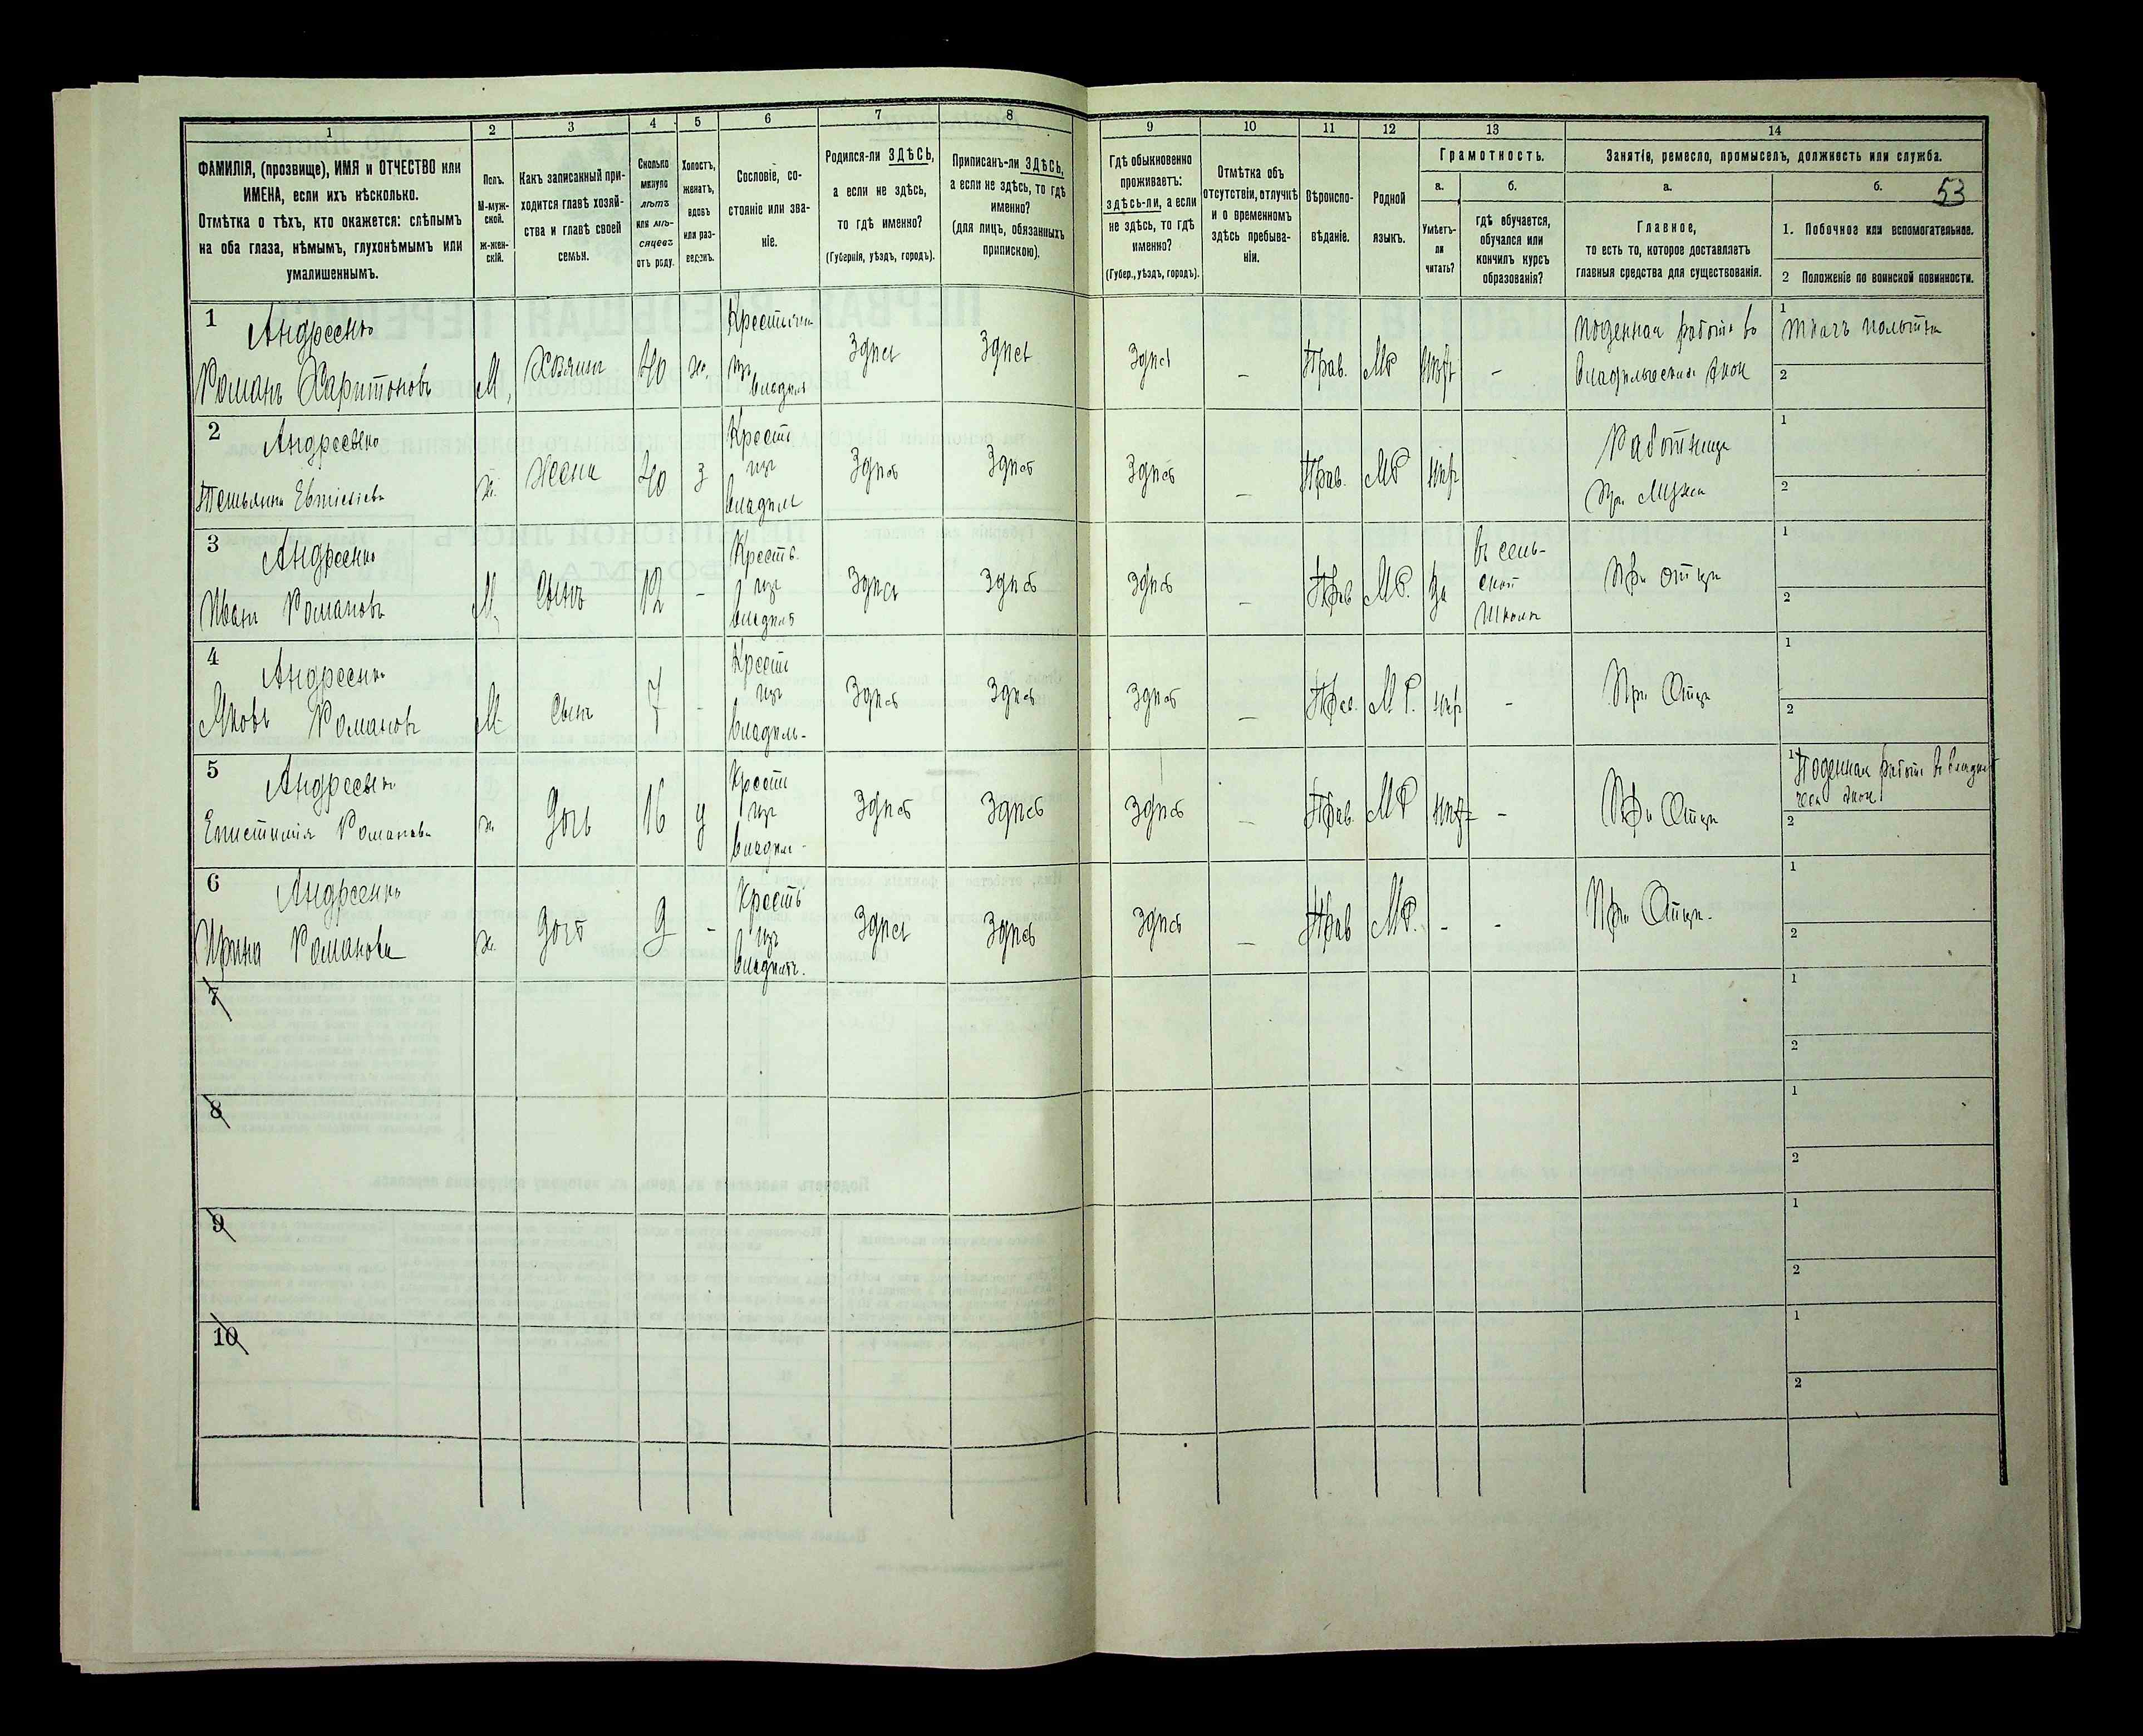 1 2 3 4 5 6 7 8 9 10 11 12 13 14
ФАМИЛІЯ, (прозвище), ИМЯ и ОТЧЕСТВО или
ИМЕНА, если ихъ нѣсколько.
Отмѣтка о тѣхъ, кто окажется: слѣпымъ
на оба глаза, нѣмымъ, глухонѣмымъ или
умалишеннымъ.
Полъ.
М-муж-
ской.
ж-жен-
скій.
Какъ записанный при-
ходится главѣ хозяй-
ства и главѣ своей
семьи.
Сколько
минуло
лѣтъ
или мѣ-
сяцевъ
отъ роду.
Холостъ,
женатъ,
вдовъ
или раз-
веденъ.
Сословіе, со-
стояніе или зва-
ніе.
Родился-ли ЗДѢСЬ,
а если не здѣсь,
то гдѣ именно?
(Губернія, уѣздъ, городъ).
Приписанъ-ли ЗДѢСЬ,
а если не здѣсь, то гдѣ
именно?
(для лицъ, обязанныхъ
припискою).
Гдѣ обыкновенно
проживаетъ:
здѣсь-ли, а если
не здѣсь, то гдѣ
именно?
(Губер., уѣздъ, городъ).
Отмѣтка объ
отсутствіи, отлучкѣ
и о временномъ
здѣсь пребыва-
ніи.
Вѣроиспо-
вѣданіе.
Родной
языкъ.
Грамотность.
а.
Умѣетъ-
ли
читать?
б.
гдѣ обучается,
обучался или
кончилъ курсъ
образованія?
Занятіе, ремесло, промыселъ, должность или служба.
а.
Главное,
то есть то, которое доставляетъ
главныя средства для существованія.
б.
53
1. Побочное или вспомогательное.
2 Положеніе по воинской повинности.
1 Андреенко
Романъ Харитоновъ
М. Хозяинъ 40 ж.
Здѣсь Здѣсь Здѣсь – Прав. МР –
Поденная работа во
1 ткачъ
2
2 Андреенко
Татьянна
ж. Жена 40 з
Крест.
изъ
владѣл
Здѣсь Здѣсь Здѣсь – Прав. МР -
Работница
При мужѣ
1
2
3 Андреенко
Иванъ Романовъ
М. Сынъ 12 -
Крестъ.
изъ
Здѣсь Здѣсь Здѣсь – Прав МР. да
въ сель-
ской
школѣ
При отцѣ
1
2
4 Андреенко
Яковъ Романовъ
М. Сынъ 7 -
Крест
изъ
владѣль-
Здѣсь Здѣсь Здѣсь – Прав. МР. -
При Отцѣ
1
2
5 Андреенко
Епистимія Романова
ж. Дочь 16 д
Крест
изъ
владѣл-
Здѣсь Здѣсь Здѣсь – Прав. МР -
При Отцѣ
1 Поденная работа въ
2
6 Андреенко
Ирина Романова
ж. Дочь 9 -
Крестъ
изъ
Здѣсь Здѣсь Здѣсь – Прав МР. - -
При Отцѣ.
1
2
7
1
2
8
1
2
9
1
2
10
1
2